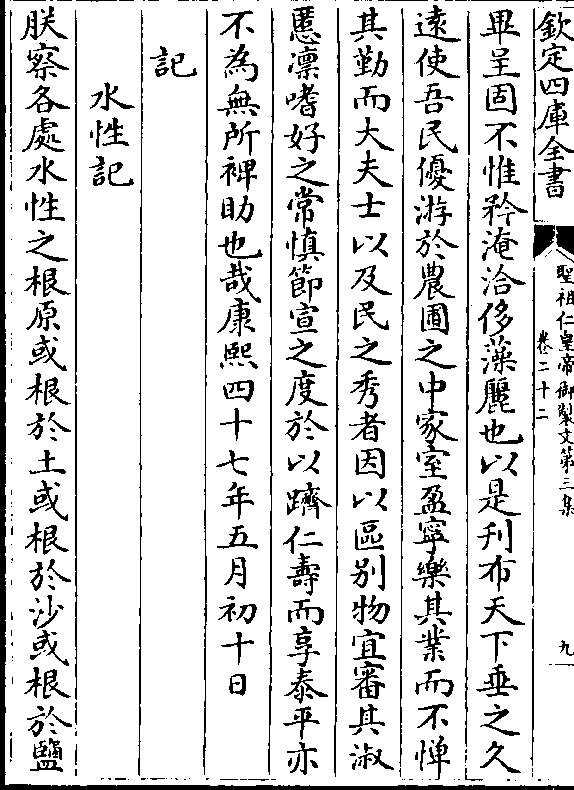 欽定四庫全書
聖祖仁皇帝御製文第三集
卷二十二
九
畢呈固不惟矜淹洽侈藻麗也以是刋布天下垂之久
遠使吾民優游於農圃之中家室盈寧樂其業而不憚
其勤而大夫士以及民之秀者因以區别物宜審其淑
慝凛嗜好之常慎節宣之度於以躋仁壽而享泰平亦
不為無所裨助也哉康熙四十七年五月初十日
記
水性記
朕察各處水性之根原或根於土或根於沙或根於鹽